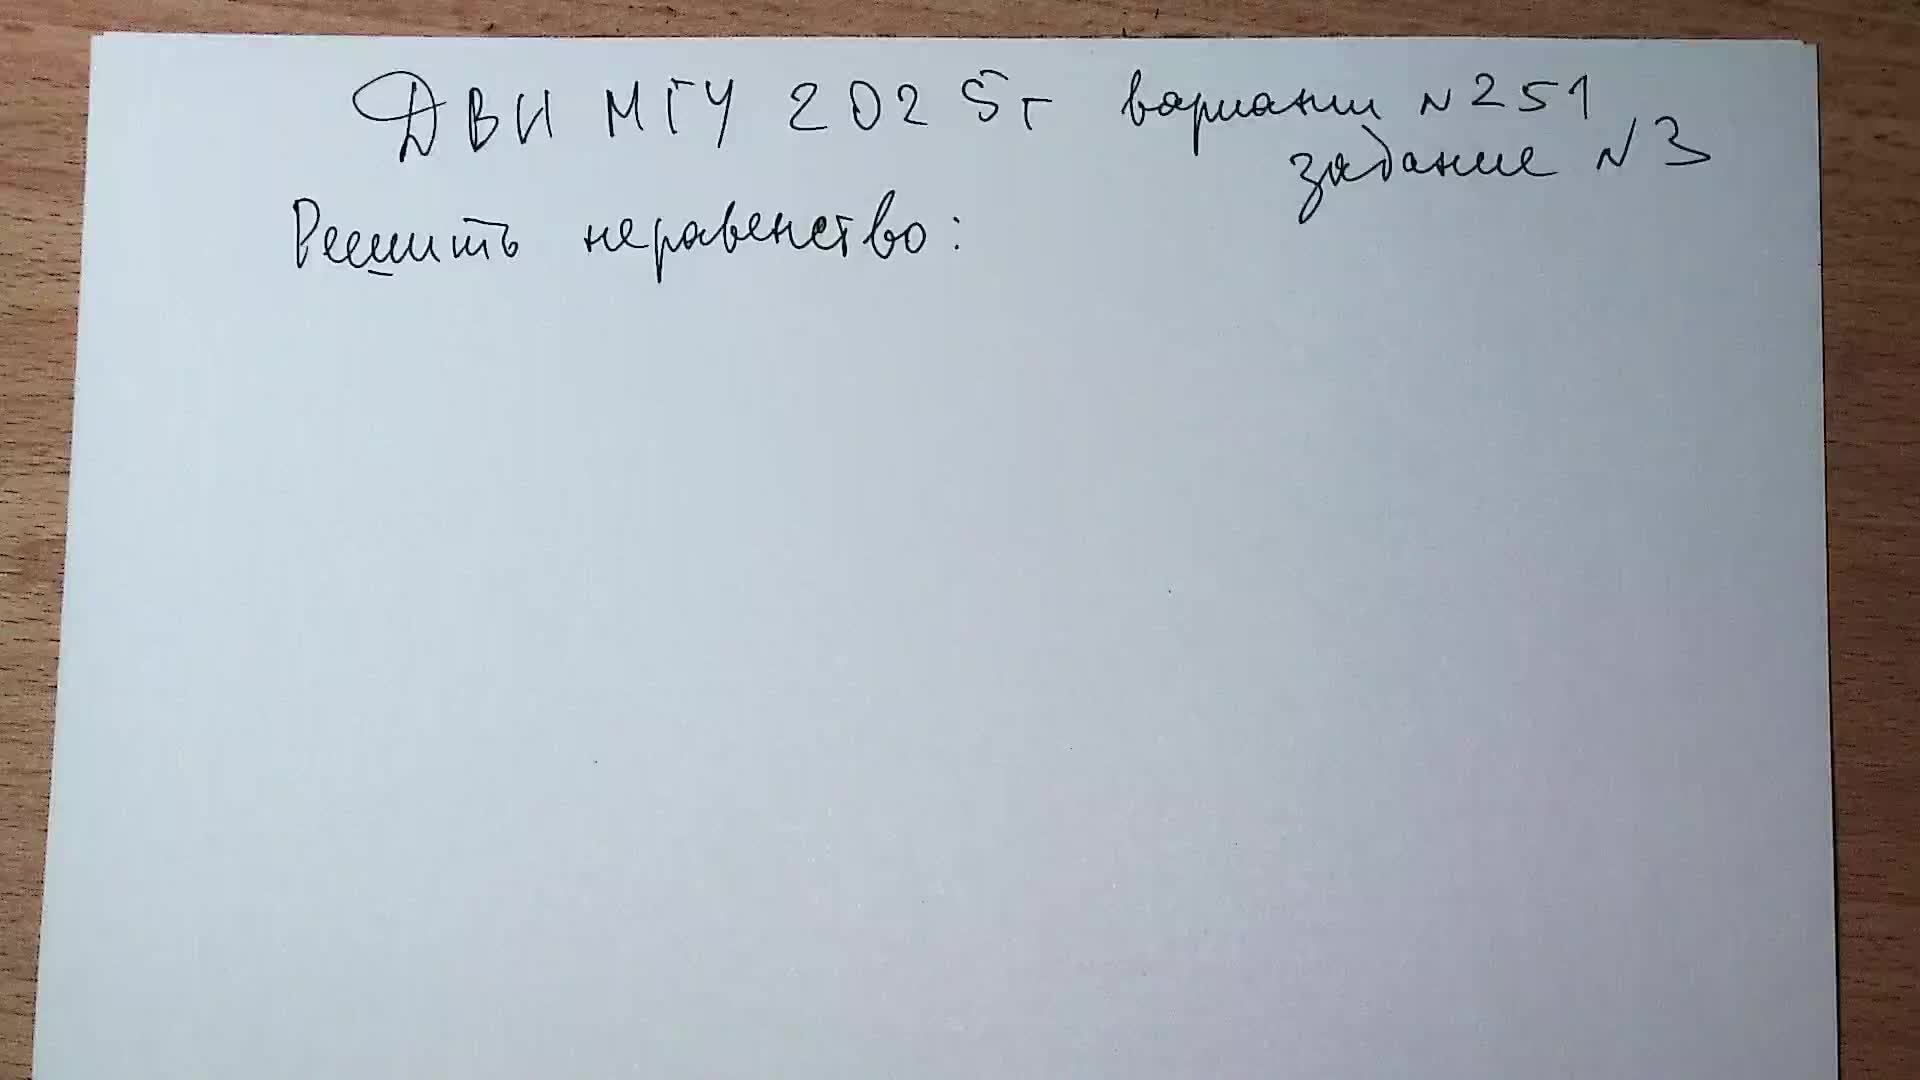 ДВИ МГУ 2025г вариант №251
задание №3
Решить неравенство: